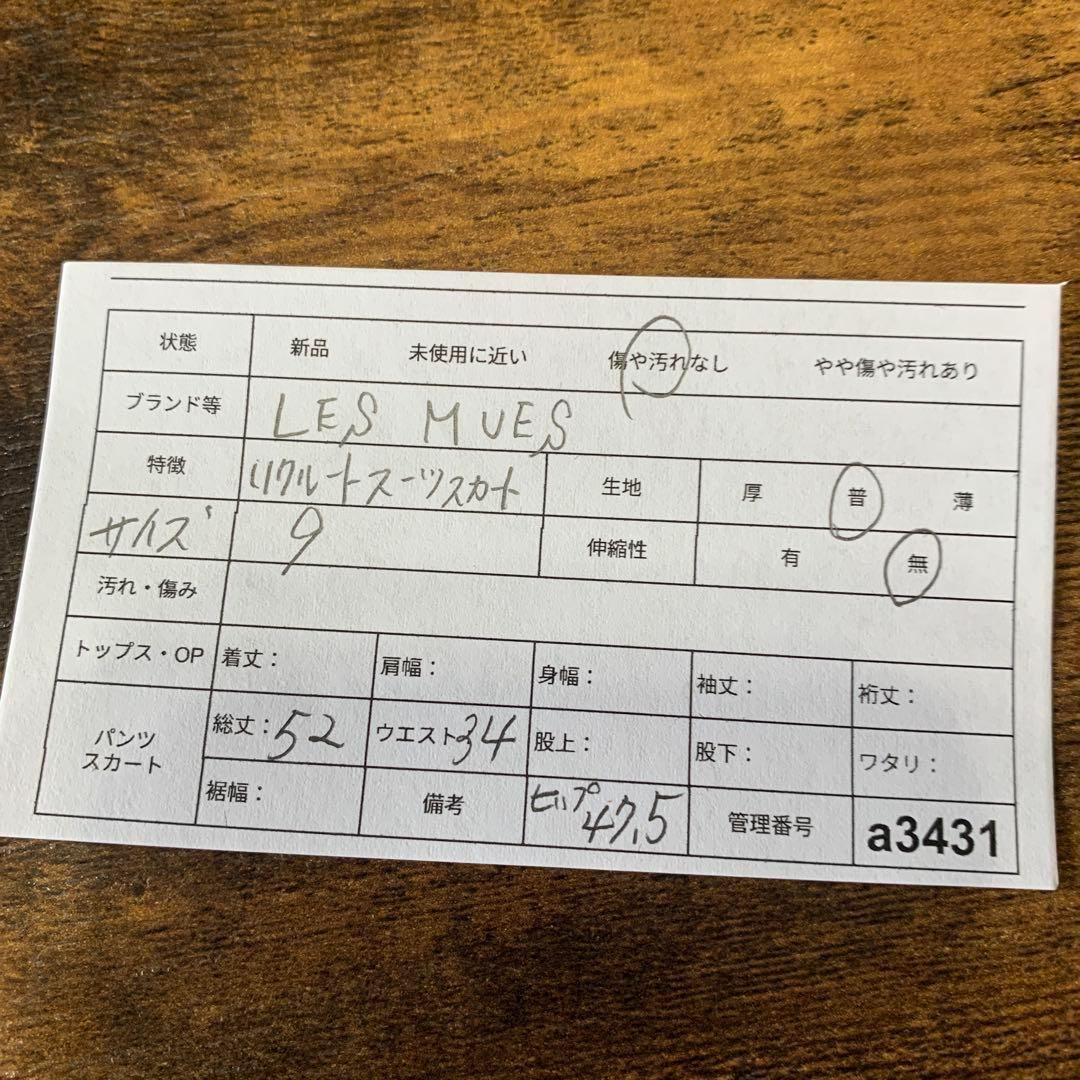 状態 新品 未使用に近い 傷や汚れなし やや傷や汚れあり
ブランド等 LES MUES
特徴 リクルートスーツスカート 生地 厚 普 薄
サイズ 9 伸縮性 有 無
汚れ・傷み
トップス・OP 着丈: 肩幅: 身幅: 袖丈: 裄丈:
パンツ スカート 総丈:52 ウエスト34 股上: 股下: ワタリ:
裾幅: 備考 ヒップ47.5 管理番号 a3431